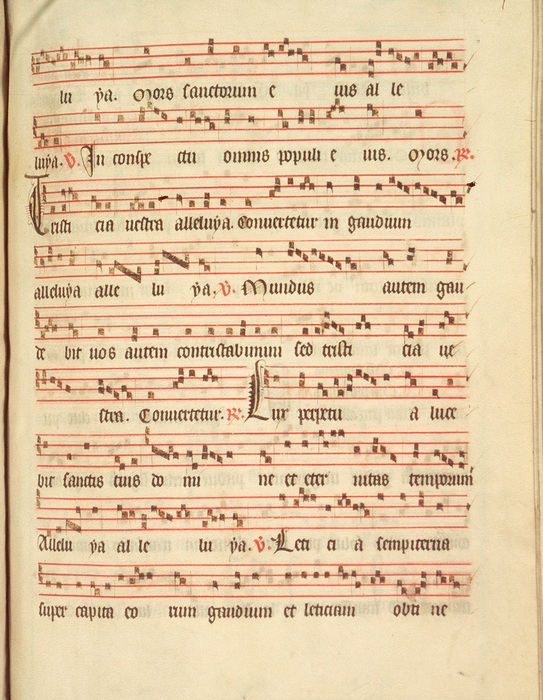 lu ya. Mors sanctorum e ius al le
luya. V. In conspe ctu omnis populi e ius. Mors. R.
Tristi cia uestra alleluya. Conuertetur in gaudium
alleluya alle lu ya. V. Mundus autem gau
de bit uos autem contristabimini sed tristi cia ue
stra. Conuertetur. R. Lux perpetu a luce
bit sanctis tuis do mi ne et eter nitas temporum
Allelu ya al le lu ya. V. Leti ci a sempiterna
super capita eo rum gaudium et leticiam obti ne